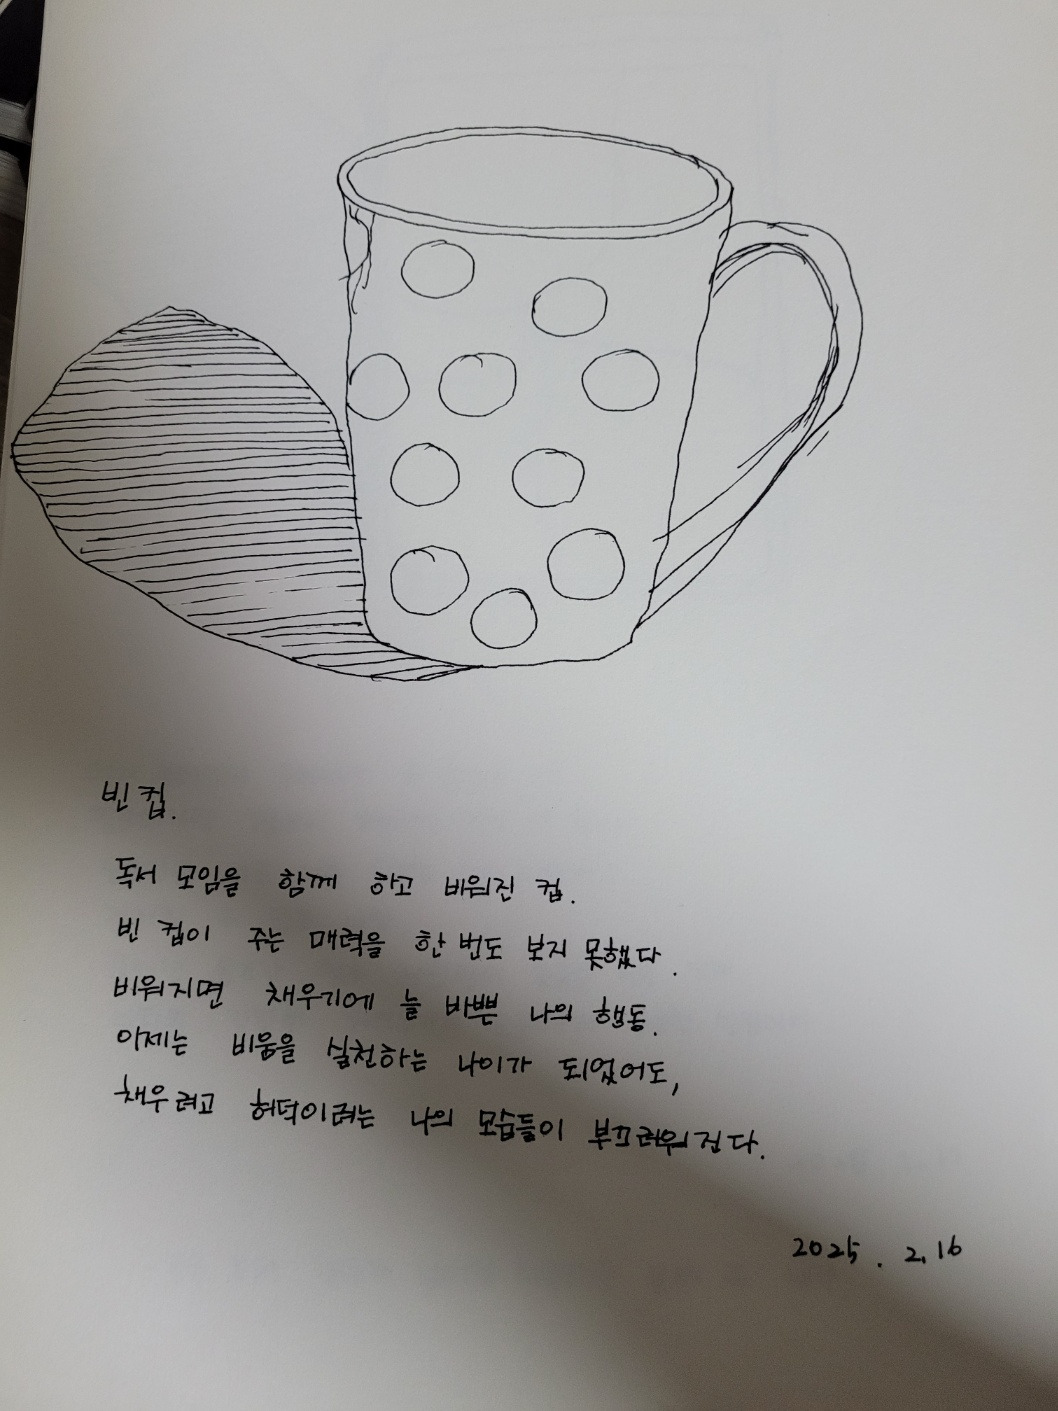 빈 컵.
독서 모임을 함께 하고 비워진 컵.
빈 컵이 주는 매력을 한 번도 보지 못했다.
비워지면 채우기에 늘 바쁜 나의 행동.
이제는 비움을 실천하는 나이가 되었어도,
채우려고 허덕이려는 나의 모습들이 부끄러워진다.
2025. 2. 16